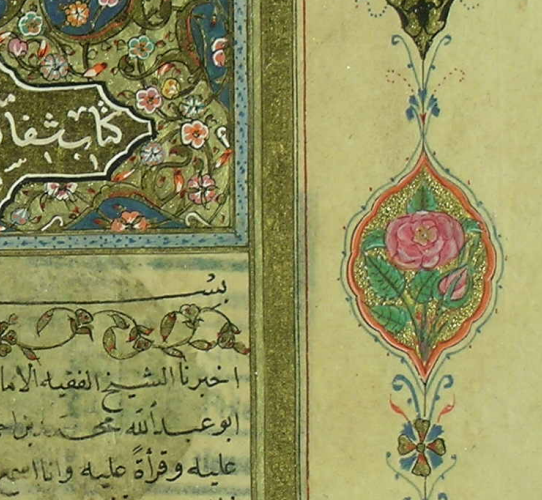 كتاب شفاء
بسـ
اخبرنا الشيخ الفقيه الاما
ابو عبد الله محمد بن احـ
عليه وقرأة عليه وانا اسمع